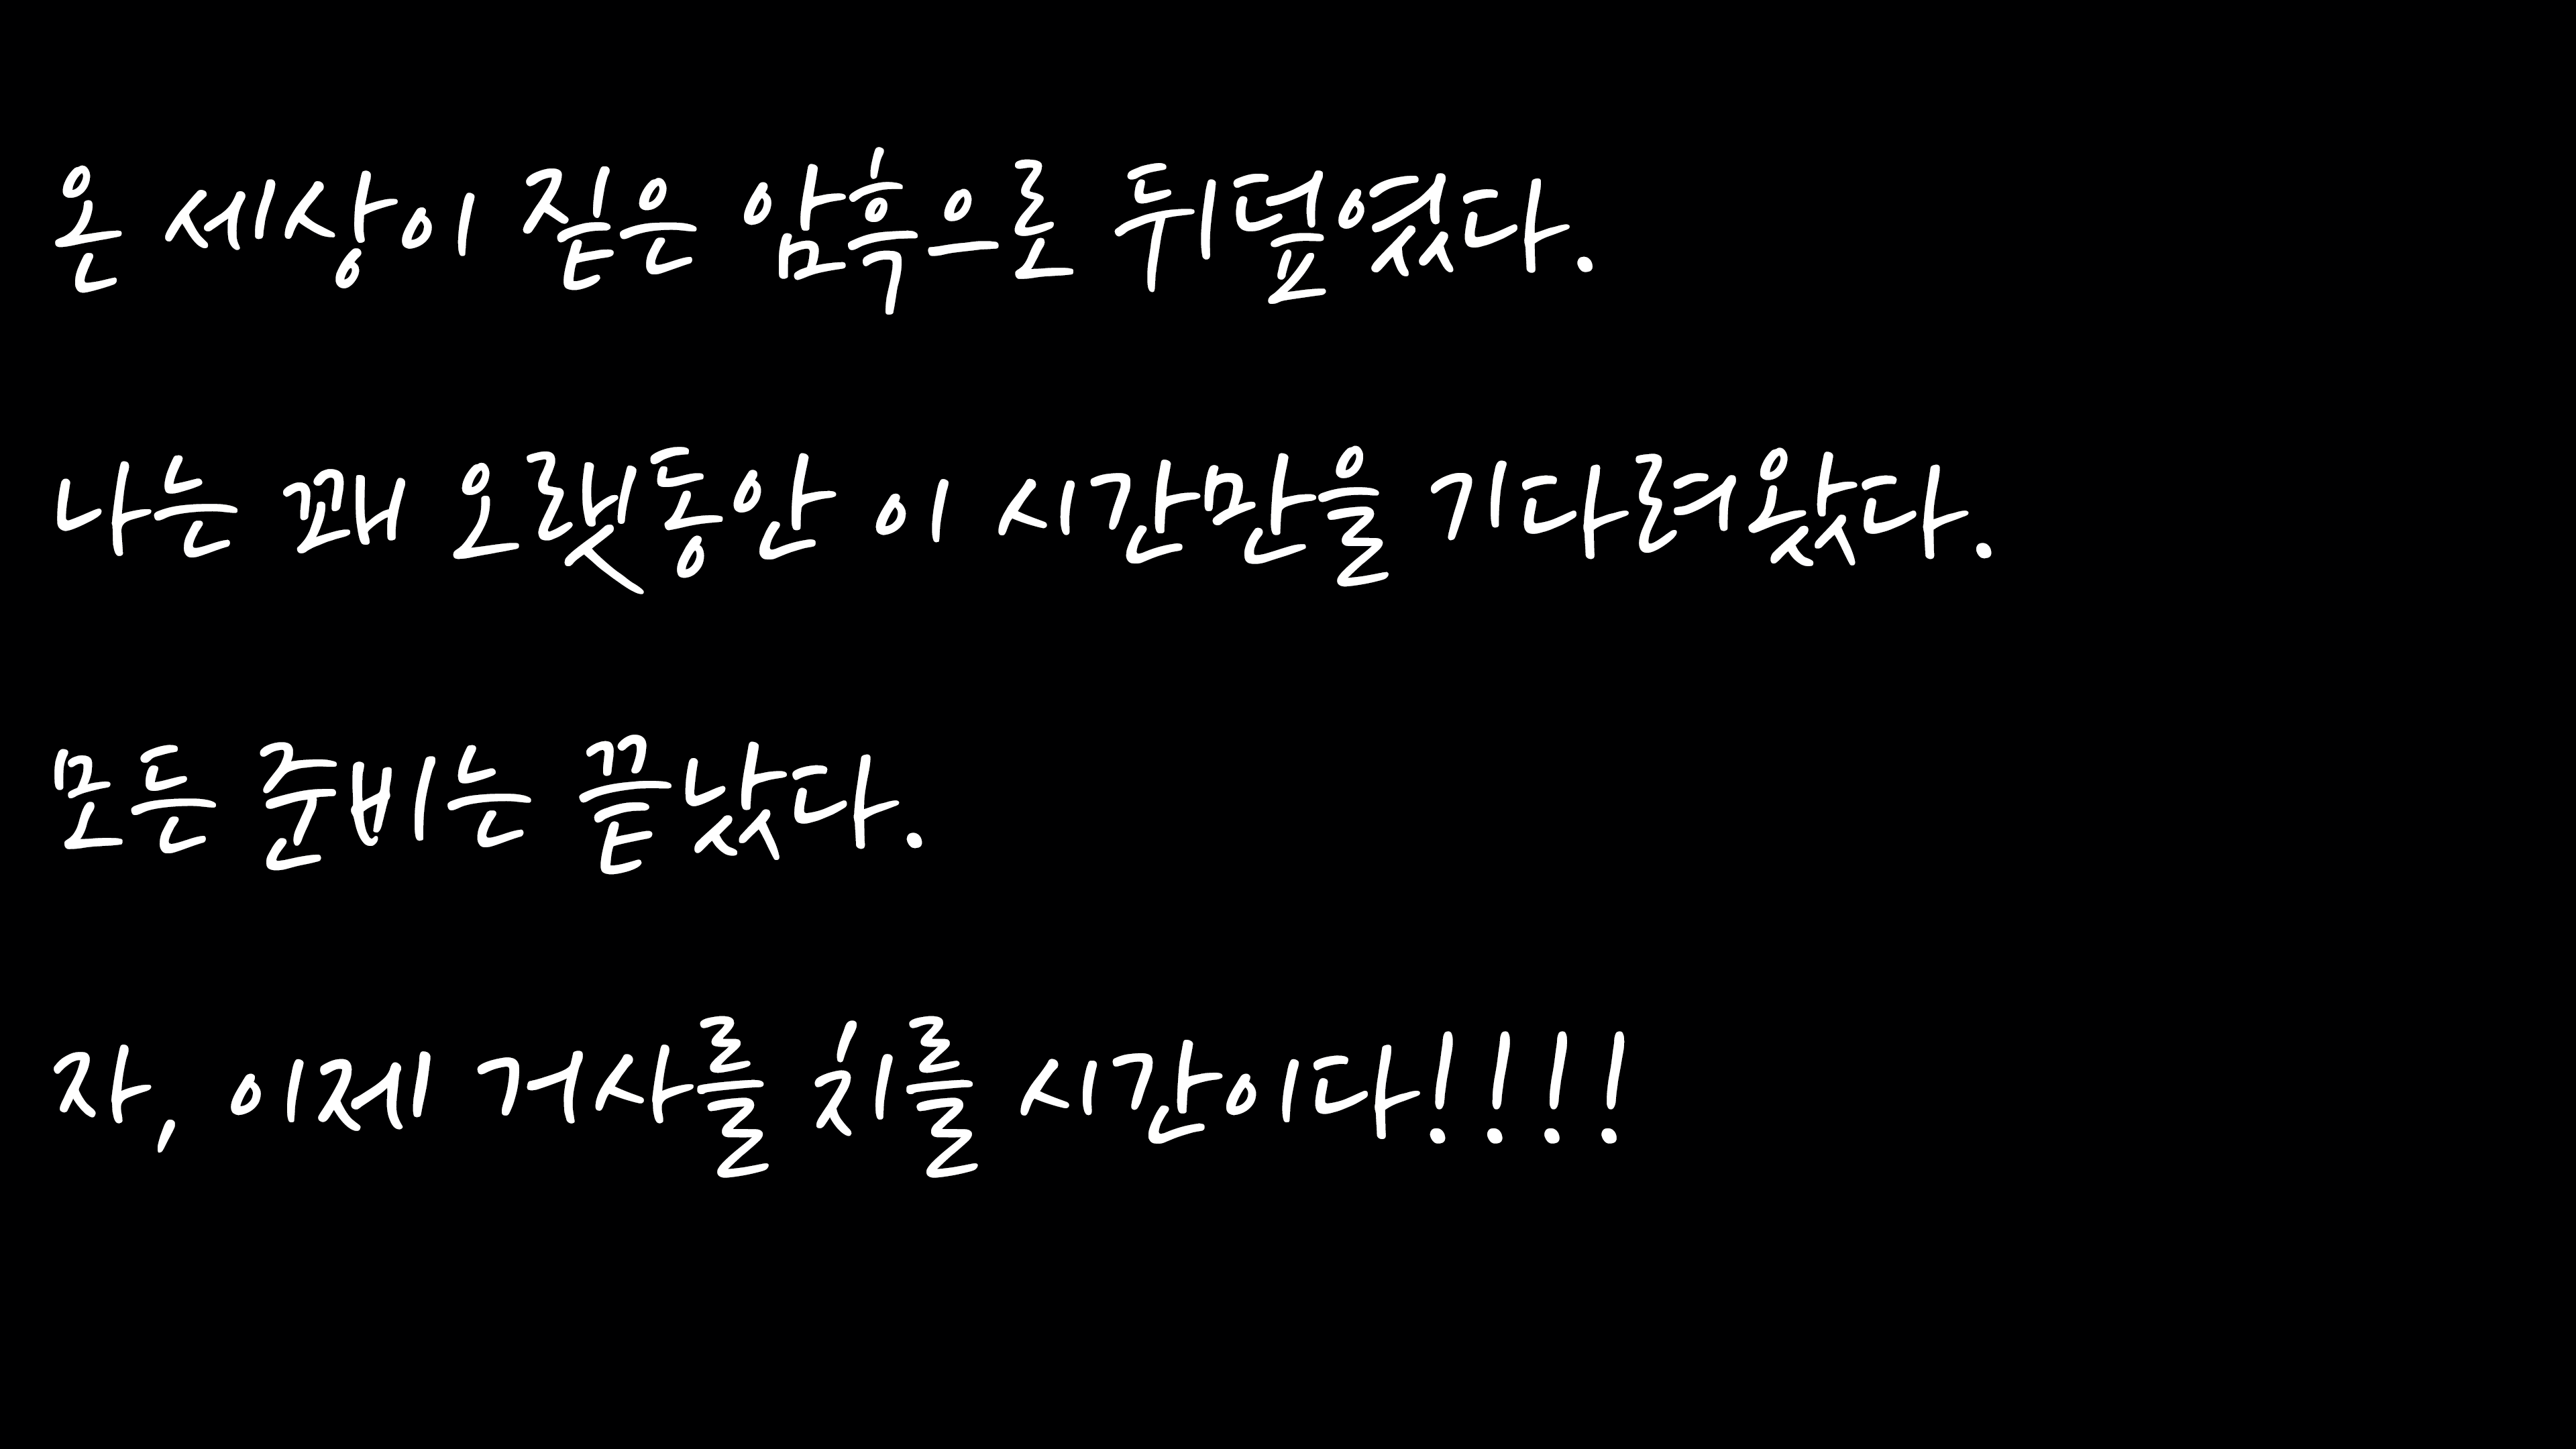 온 세상이 짙은 암흑으로 뒤덮였다.
나는 꽤 오랫동안 이 시간만을 기다려왔다.
모든 준비는 끝났다.
자, 이제 거사를 치를 시간이다!!!!